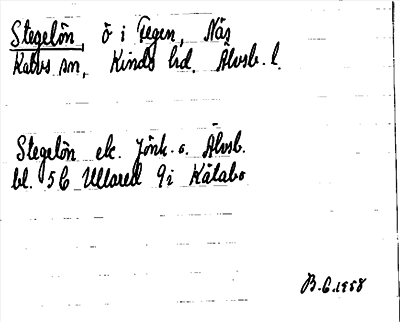 Stegelön, ö i Fegen, Näs
Kalvs sn, Kinds hd, Älvsb. l.
Stegelön ek. Jönk. o. Älvsb.
bl. 5C Ullared 9i Kätabo
B.G.1958